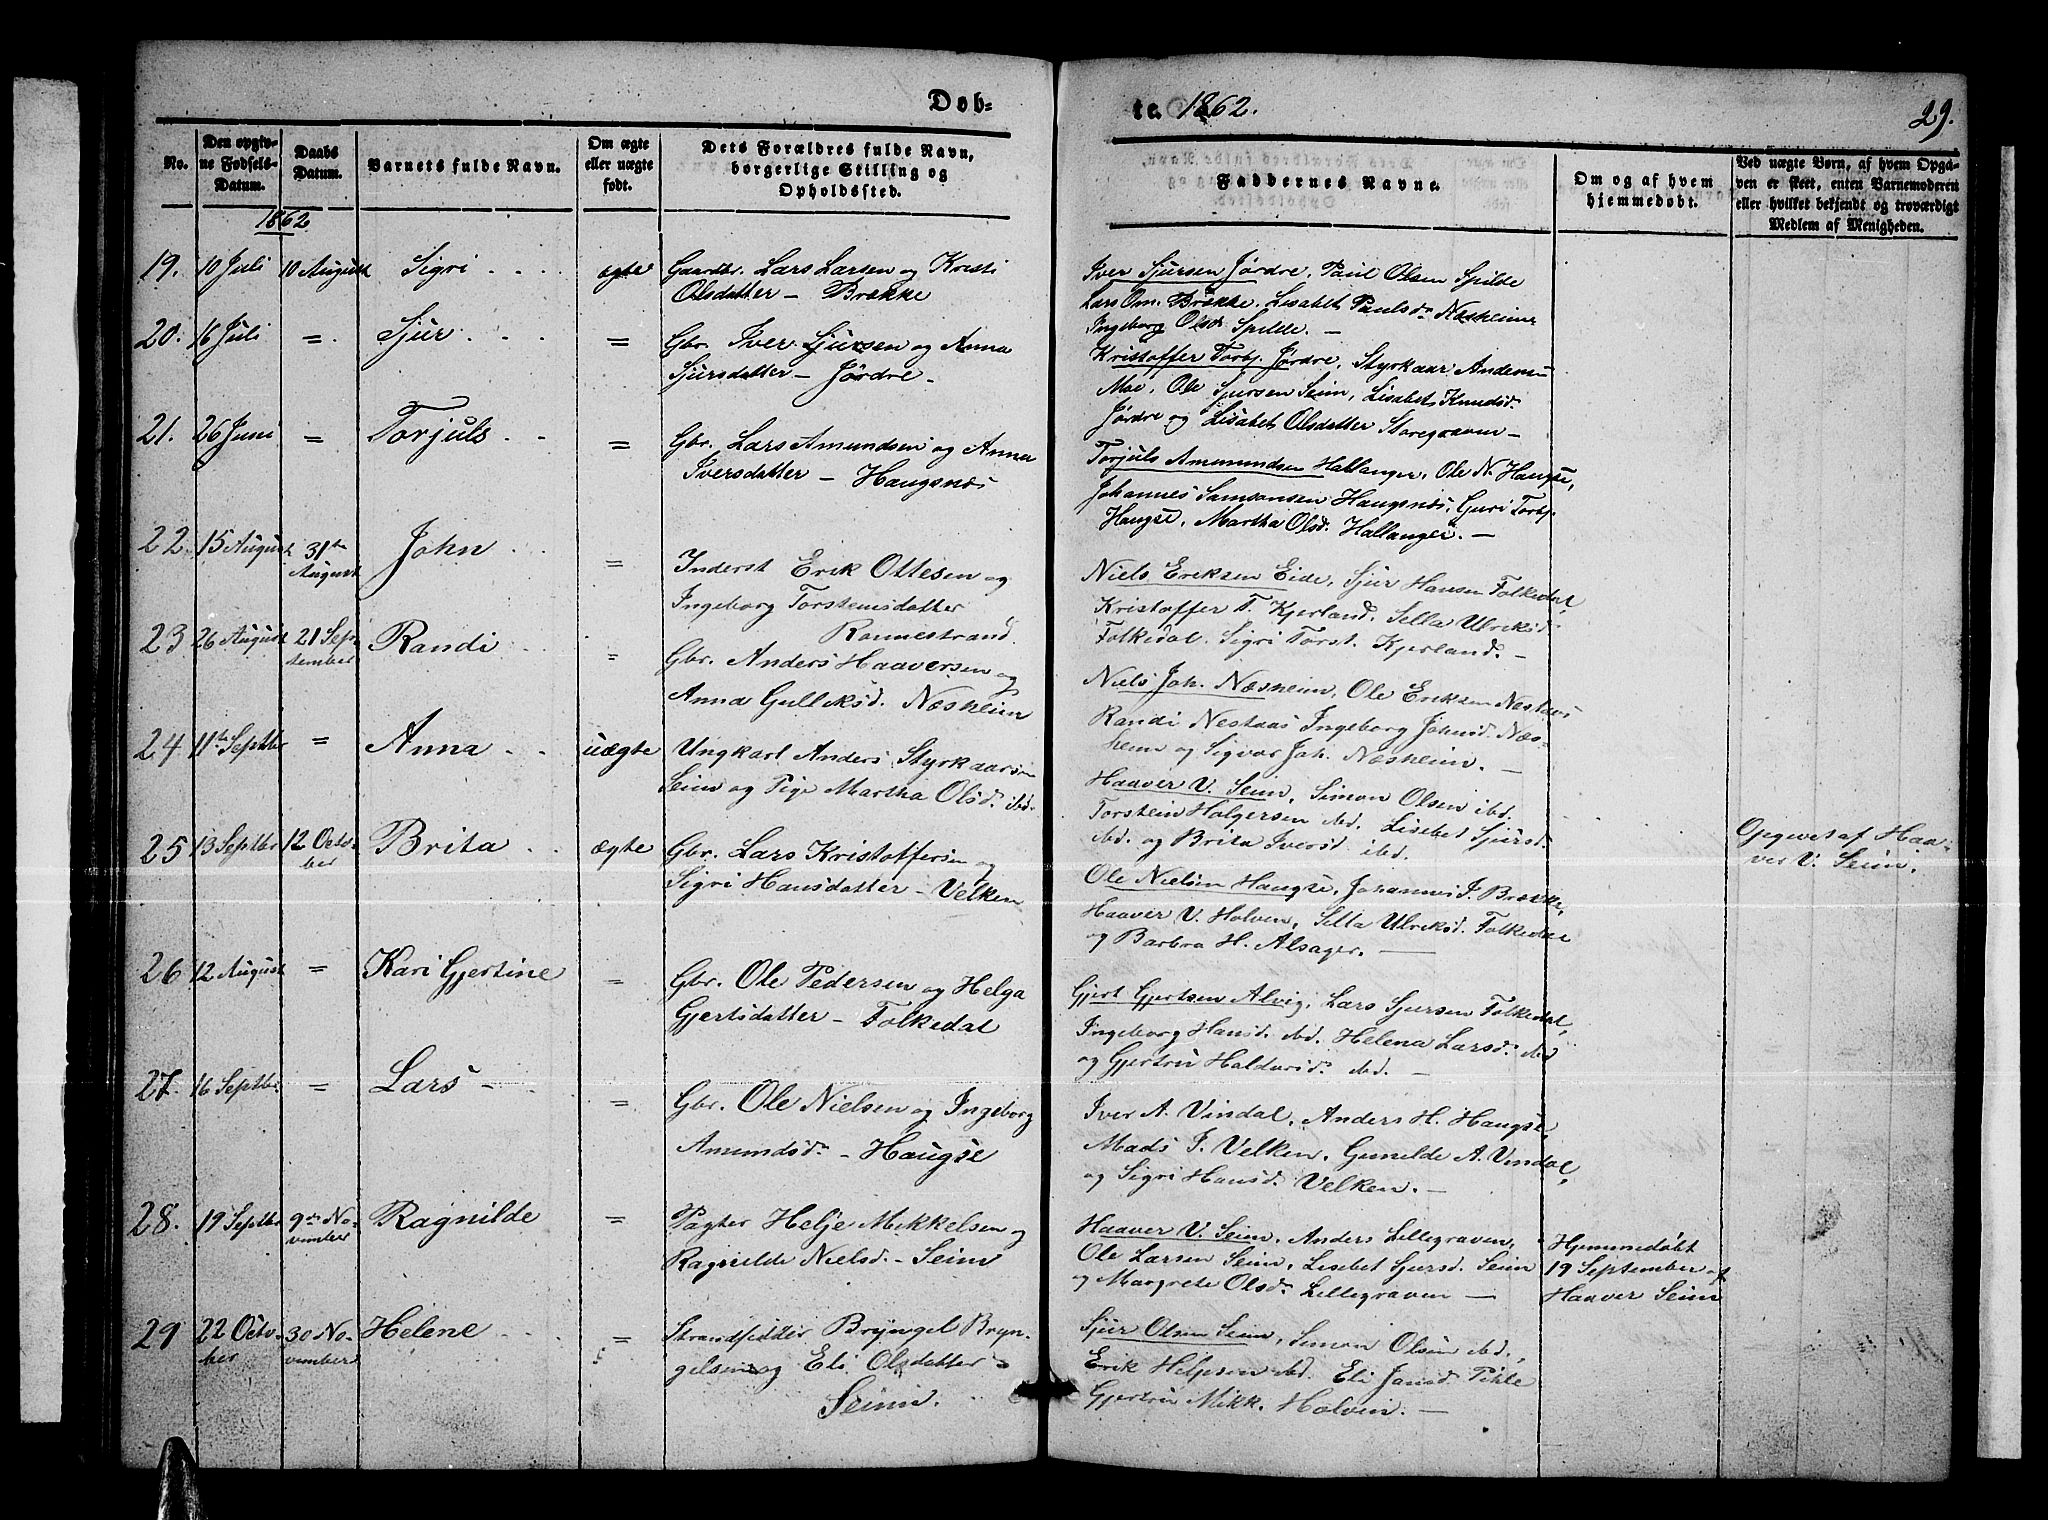 Døb-
te 1862.
29.
No.
Den opgiv-
ne Fødsels-
Datum.
Daabs
Datum.
Barnets fulde Navn.
Om ægte
eller uægte
født.
Dets Forældres fulde Navn,
borgerlige Stilling og
Opholdssted.
Faddernes Navne.
Om og af hvem
hjemmedøbt.
Ved uægte Børn, af hvem Opga-
ven er skeet, enten Barnemoderen
eller hvilket bekjendt og troværdigt
Medlem af Menigheden.
1862
19. 10 Juli 10 August Sigri ægte Gaardbr. Lars Larsen og Kristi
Olsdatter – Brække
Iver Sjursen Jørdre, Paul Olsen Spilde
Lars Om. Brække. Lisabet Paulsdr Næsheim
Ingeborg Olsdr Spilde. –
20. 16 Juli = Sjur = Gbr. Iver Sjursen og Anna
Sjursdatter – Jørdre –
Kristoffer Torbj. Jørdre, Styrkaar Andersen
Moe, Ole Sjursen Seim, Lisabet Knudsd.
Jørdre og Lisabet Olsdatter Storegraven –
21. 26 Juni = Torjuls = Gbr. Lars Amundsen og Anna
Iversdatter – Haugsnæs
Torjuls Amumundsen Hallanger, Ole N. Haugse,
Johannes Samsonsen Haugsnæs, Guri Torbj.
Haugse, Martha Olsd. Hallanger. –
22. 15 August 31te
August John = Inderst Erik Ottesen og
Ingeborg Torsteinsdatter
Ronnestrand.
Niels Eriksen Eide, Sjur Hansen Folkedal
Kristoffer T. Kjerland, Sella Ulriksd.
Folkedal. Sigri Torst. Kjerland. –
23 26 August 21 Sep-
tember Randi = Gbr. Anders Haaversen og
Anna Gulleksd. Næsheim
Niels Joh. Næsheim, Ole Eriksen Nestaas
Randi Nestaas Ingeborg Johnsd. Næs-
heim og Sigvor Joh. Næsheim. –
24 11te Septbr = Anna uægte Ungkarl Anders Styrkaarsen
Seim og Pige Martha Olsd. ibd.
Haaver V. Seim, Simon Olsen ibd.
Torstein Holgersen ibd. Lisebet Sjursd.
ibd. og Brita Iversd ibd.
Opgevet af Haa-
ver V. Seim.
25 13 Septbr 12 Octo-
ber Brita ægte Gbr. Lars Kristoffersen og
Sigri Hansdatter – Velken
Ole Nielsen Haugse, Johannes J. Brække,
Haaver V. Holven, Sella Ulriksd. Folkedal
og Barbra H. Alsager. –
26 12 August = Kari Gjertine = Gbr. Ole Pedersen og Helga
Gjertsdatter – Folkedal
Gjert Gjertsen Alvig, Lars Sjursen Folkedal,
Ingeborg Hansd. ibd. Helena Larsd. ibd
og Gjertrú Haldorsd. ibd. –
27. 16 Septbr. = Lars – = Gbr. Ole Nielsen og Ingeborg
Amundsdr – Haugse
Iver A. Vindal, Anders H. Haugse,
Mads J. Velken, Gunilde A. Vindal,
og Sigri Hansd. Velken. –
28. 19 Septbr 9de No-
vember Ragnilde = Pagter Helje Mikkelsen og
Ragnilde Nielsd. – Seim
Haaver V. Seim, Anders Lillegraven,
Ole Larsen Seim, Lisebet Sjursd. Seim
og Margrete Olsdr Lillegraven –
Hjemmedøbt
19 September af
Haaver Seim
29 22 Octo-
ber 30 No-
vember Helene = Strandsidder Bryngel Bryn-
gelsen og Eli Olsdatter
Seim.
Sjur Olsen Seim, Simon Olsen ibd,
Erik Heljesen ibd. Eli Jansd. Tihle
Gjertrú Mikk. Holven. –